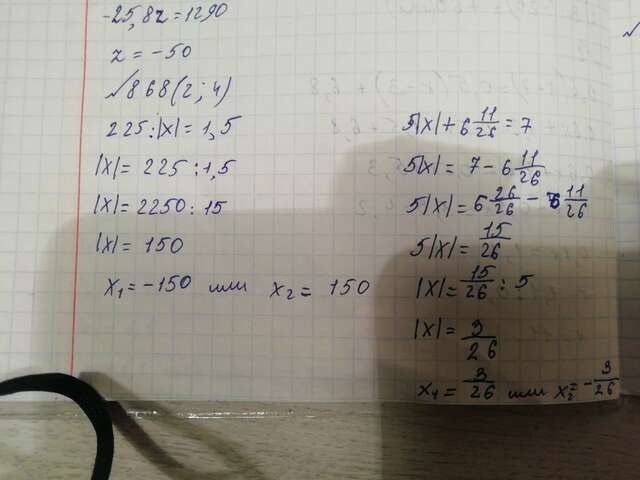 -25,8z = 1290
z = -50
√868(2; 4)
225:|x| = 1,5
|x| = 225 : 1,5
|x| = 2250 : 15
|x| = 150
x₁ = -150 или x₂ = 150
5|x| + 6 11/26 = 7
5|x| = 7 - 6 11/26
5|x| = 6 26/26 - 6 11/26
5|x| = 15/26
|x| = 15/26 : 5
|x| = 3/26
x₁ = 3/26 или x₂ = - 3/26